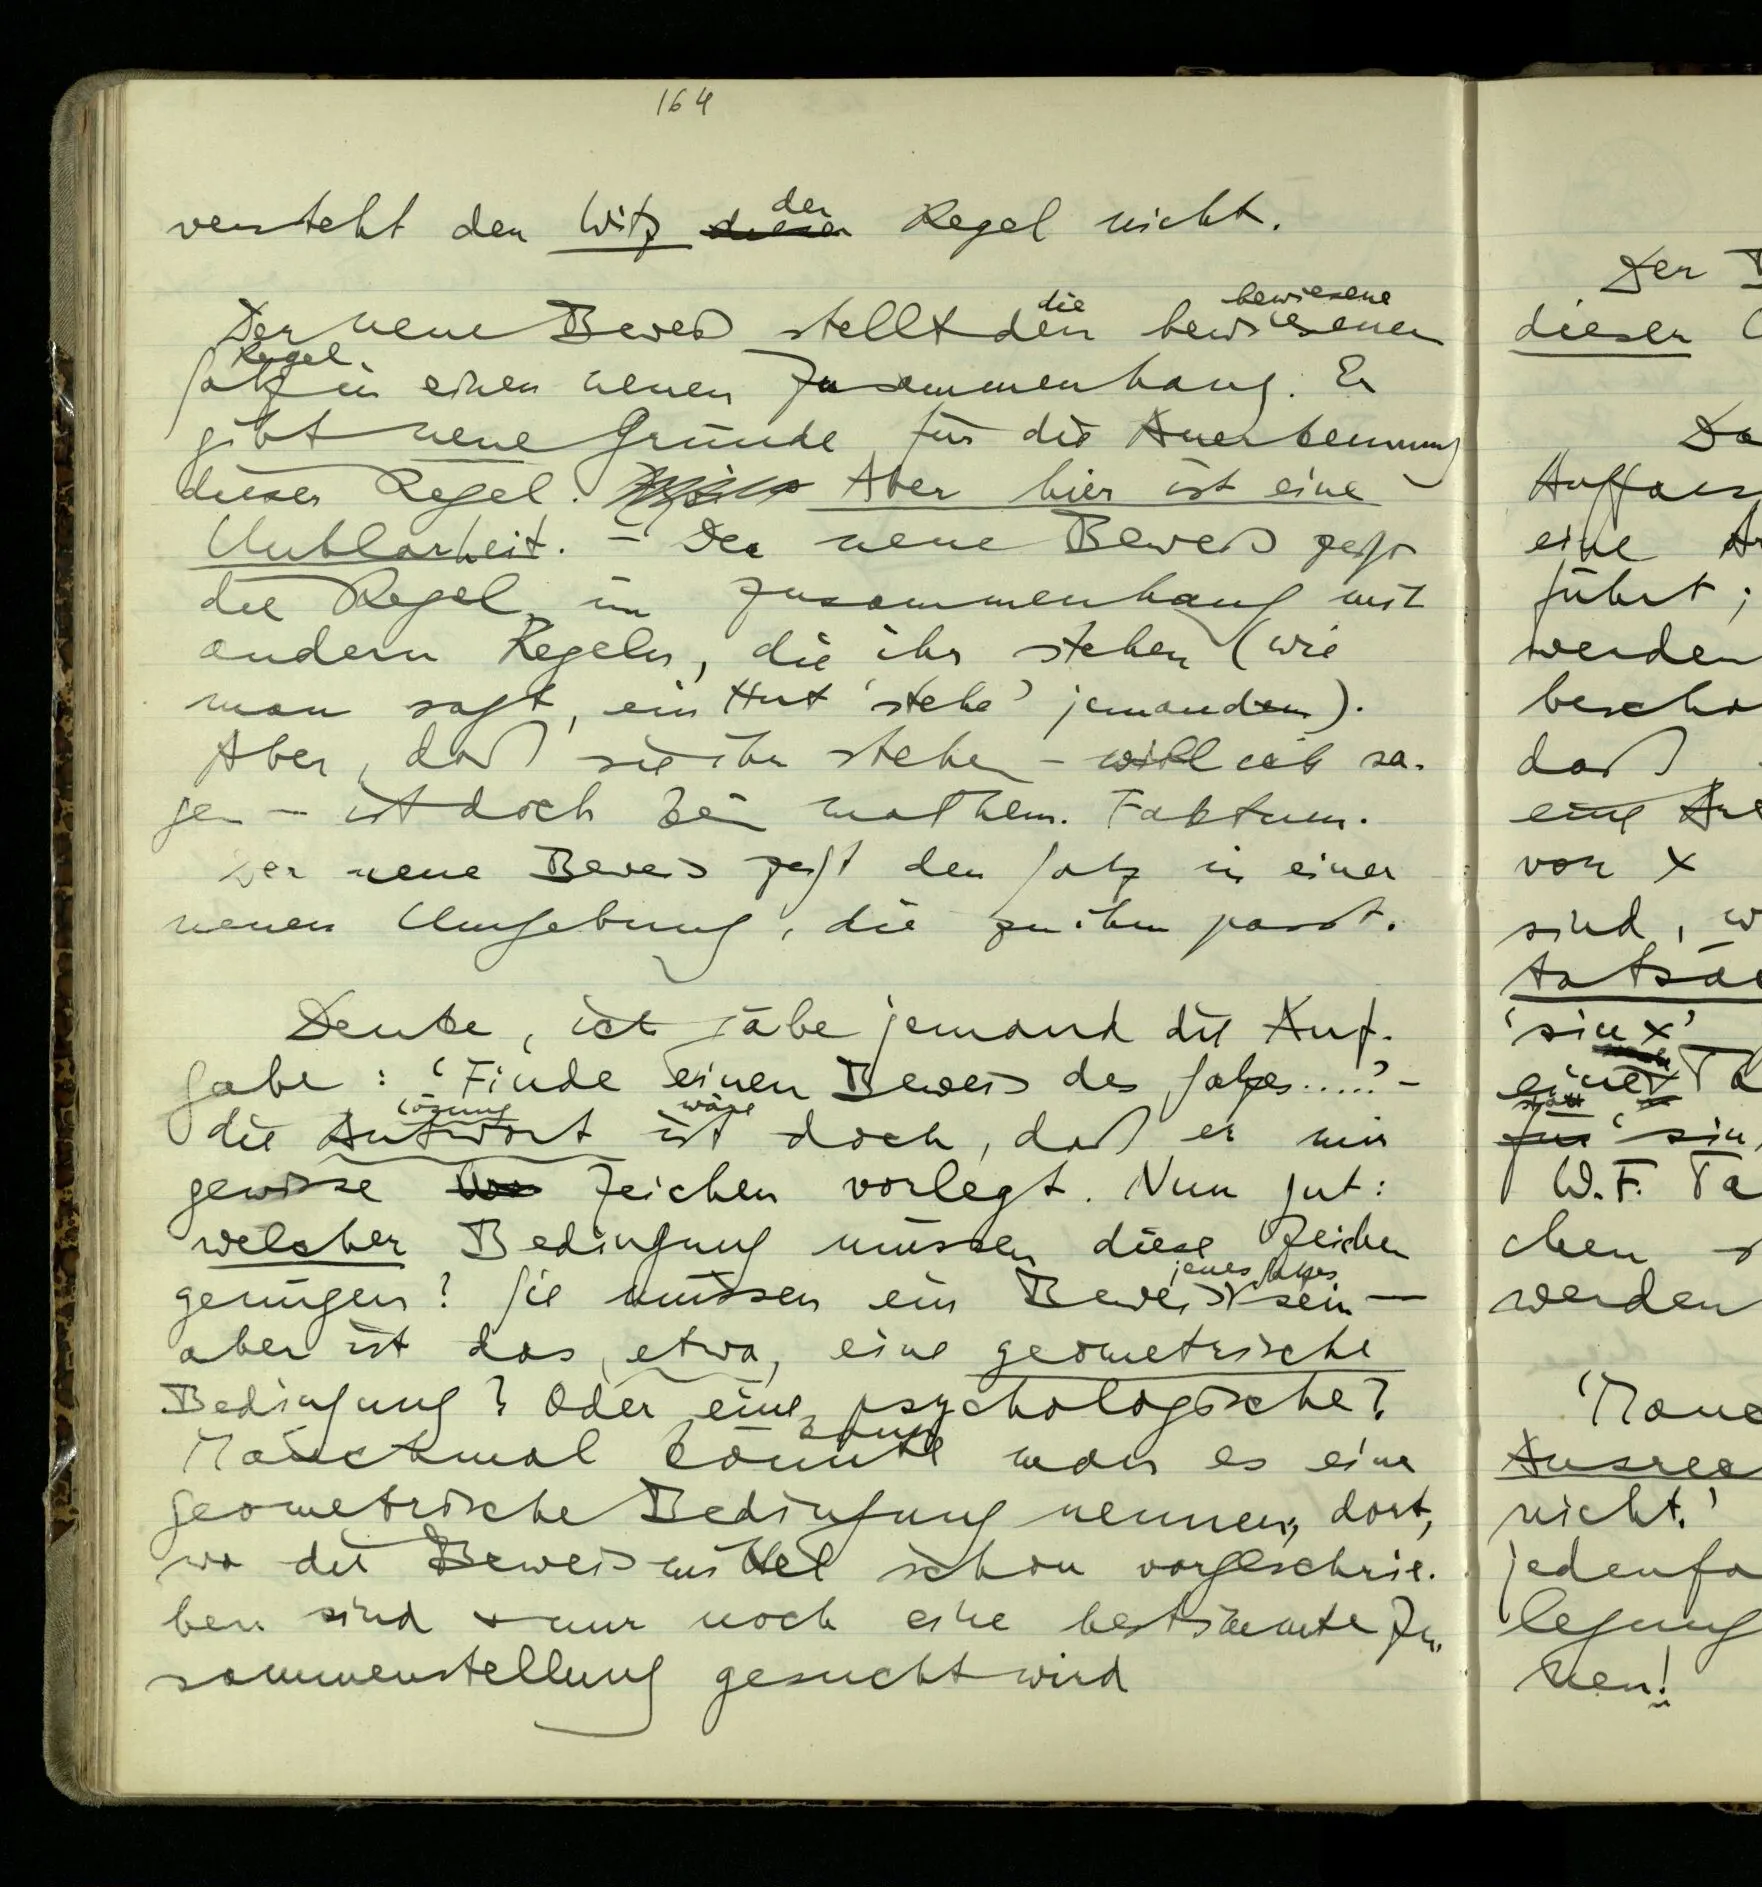 164
versteht den Witz dieser der Regel nicht.
Der neue Beweis stellt den die bewiesenen bewiesene
Satz Regel in einen neuen Zusammenhang. Er
gibt neue Gründe für die Anerkennung
dieser Regel. Aber hier ist eine
Unklarheit. – Der neue Beweis zeigt
die Regel im Zusammenhang mit
andern Regeln, die ihr stehen (wie
man sagt, ein Hut 'stehe' jemandem).
Aber, daß sie ihr stehen – will ich sa-
gen – ist doch kein mathem. Faktum.
Der neue Beweis zeigt den Satz in einer
neuen Umgebung, die zu ihm passt.
Denke, ich gäbe jemand die Auf-
gabe: 'Finde einen Beweis des Satzes.....' –
die Antwort Lösung ist wäre doch, daß er mir
gewisse Zeichen vorlegt. Nun gut:
welcher Bedingung müssen diese Zeichen
genügen? Sie müssen ein Beweis jenes Satzes sein –
aber ist das, etwa, eine geometrische
Bedingung? Oder eine psychologische?
Manchmal könnte kann man es eine
geometrische Bedingung nennen; dort,
wo die Beweismittel schon vorgeschrie-
ben sind + nur noch eine bestimmte Zu-
sammenstellung gesucht wird
Der
dieser
eine
führt;
werden
daß
eine
von x
sind, w
'sin x'
W.F. Ta
chen
werden
nicht.'
jedenfa
legung
nen!